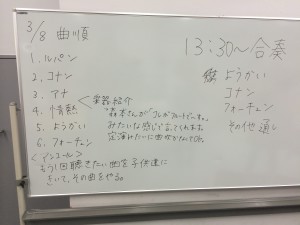 3/8 曲順
1. ルパン
2. コナン
3. アナ
4. 情熱
5. ようかい
6. フォーチュン
<アンコール>
もう1回聴きたい曲を子供達に
きいて、その曲をやる。
楽器紹介
"森本さんがフルートで〜す。"
みたいな感じで言ってくれます。
実演みたいに曲吹かなくてOK。
13:30〜 合奏
ようかい
コナン
フォーチュン
その他 通し